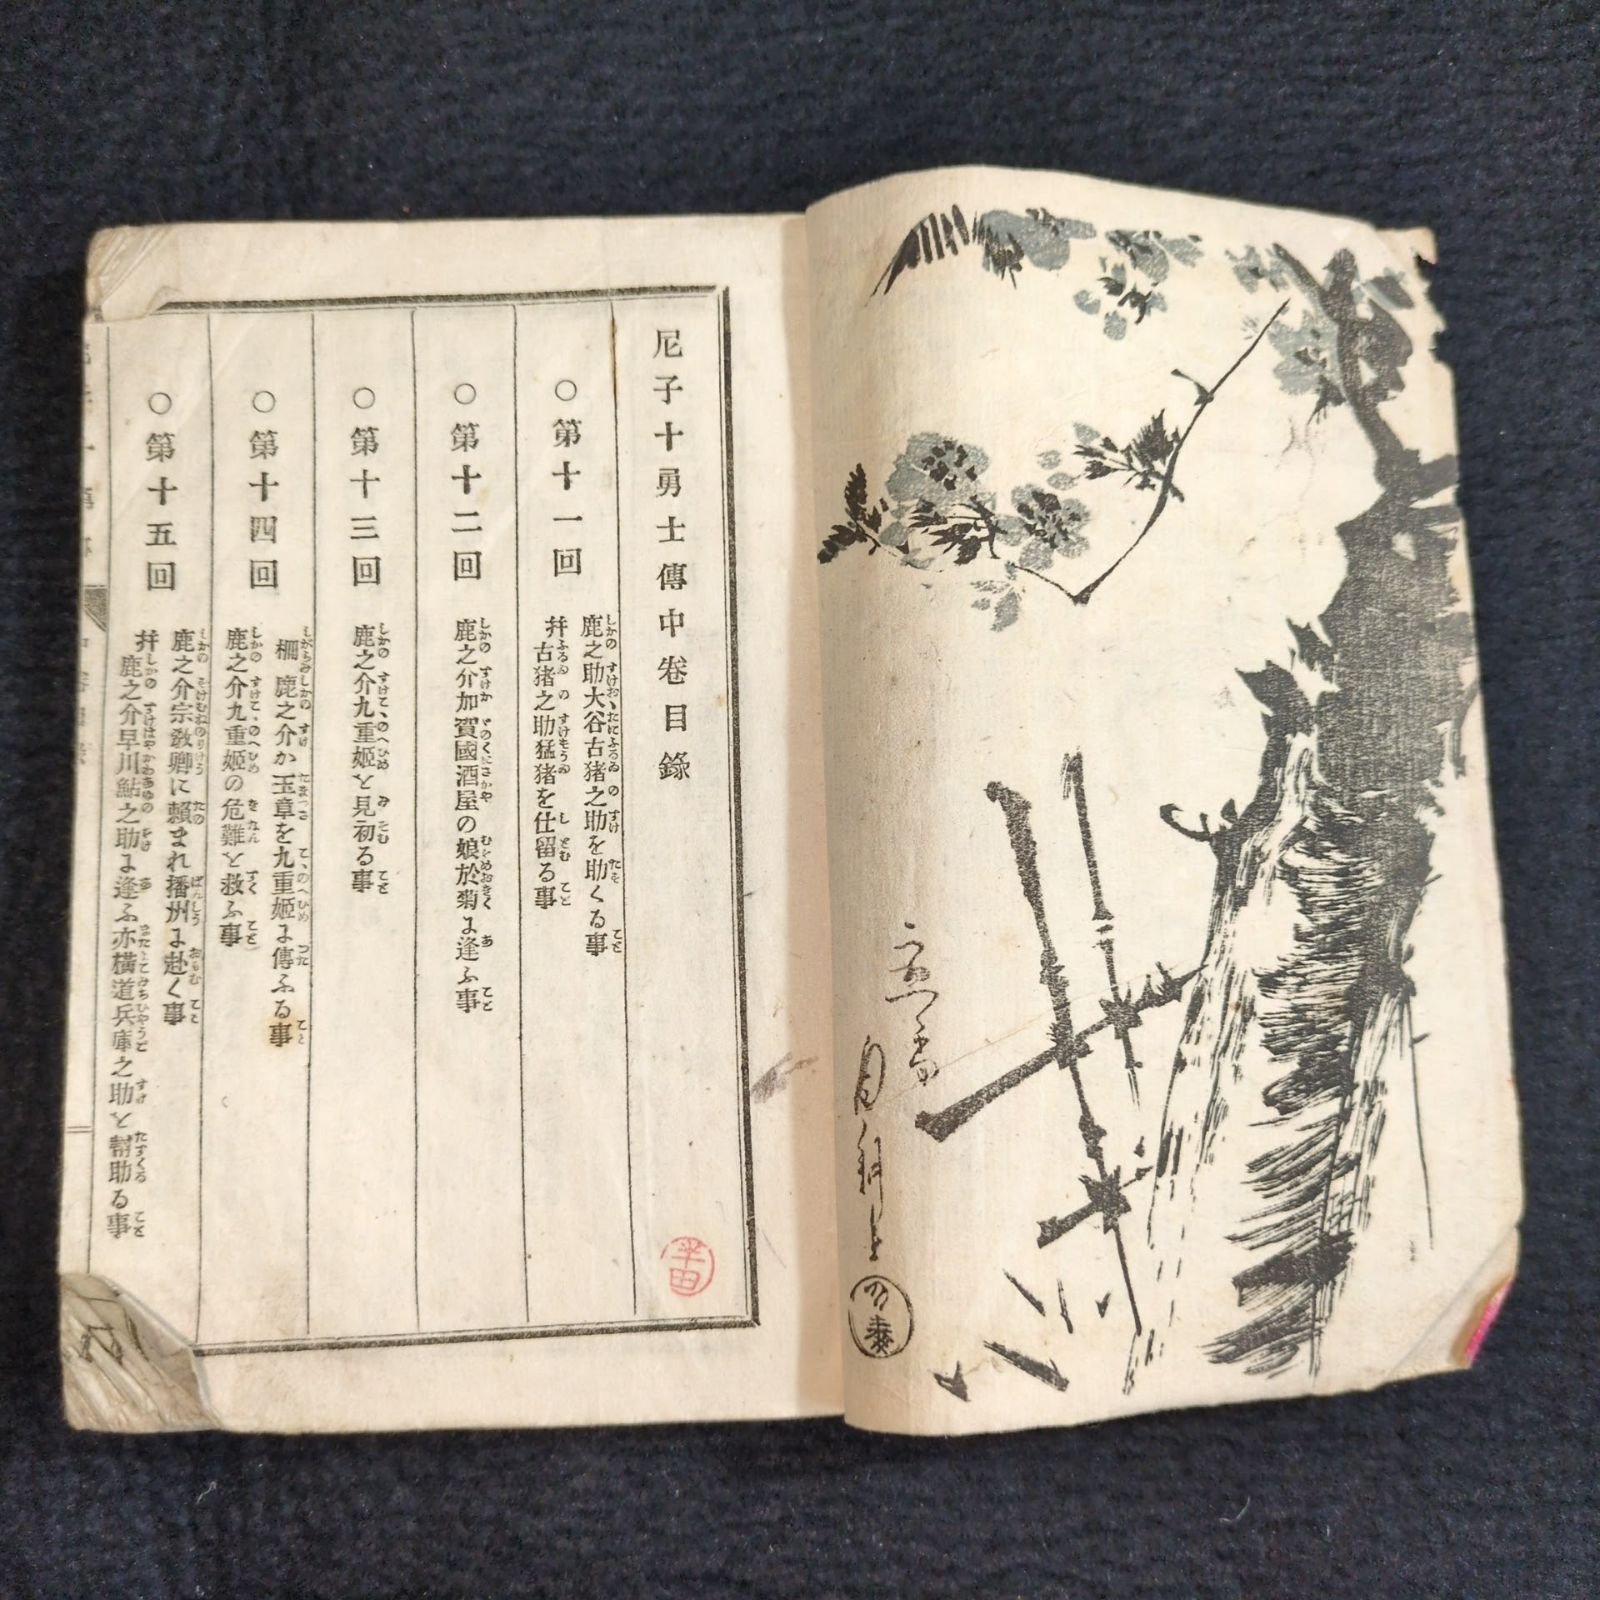 尼子十勇士傳中卷目錄
○第十一回
鹿之助大谷古猪之助を助くる事
幷古猪之助猛猪を仕留る事
○第十二回
鹿之介加賀國酒屋の娘於菊に逢ふ事
○第十三回
鹿之介九重姫と見初る事
○第十四回
柵鹿之介か玉章を九重姫に傳ふる事
鹿之介九重姫の危難と救ふ事
○第十五回
鹿之介宗敎卿に賴まれ播州に赴く事
幷鹿之介早川鮎之助に逢ふ亦橫道兵庫之助と幇助る事
半田